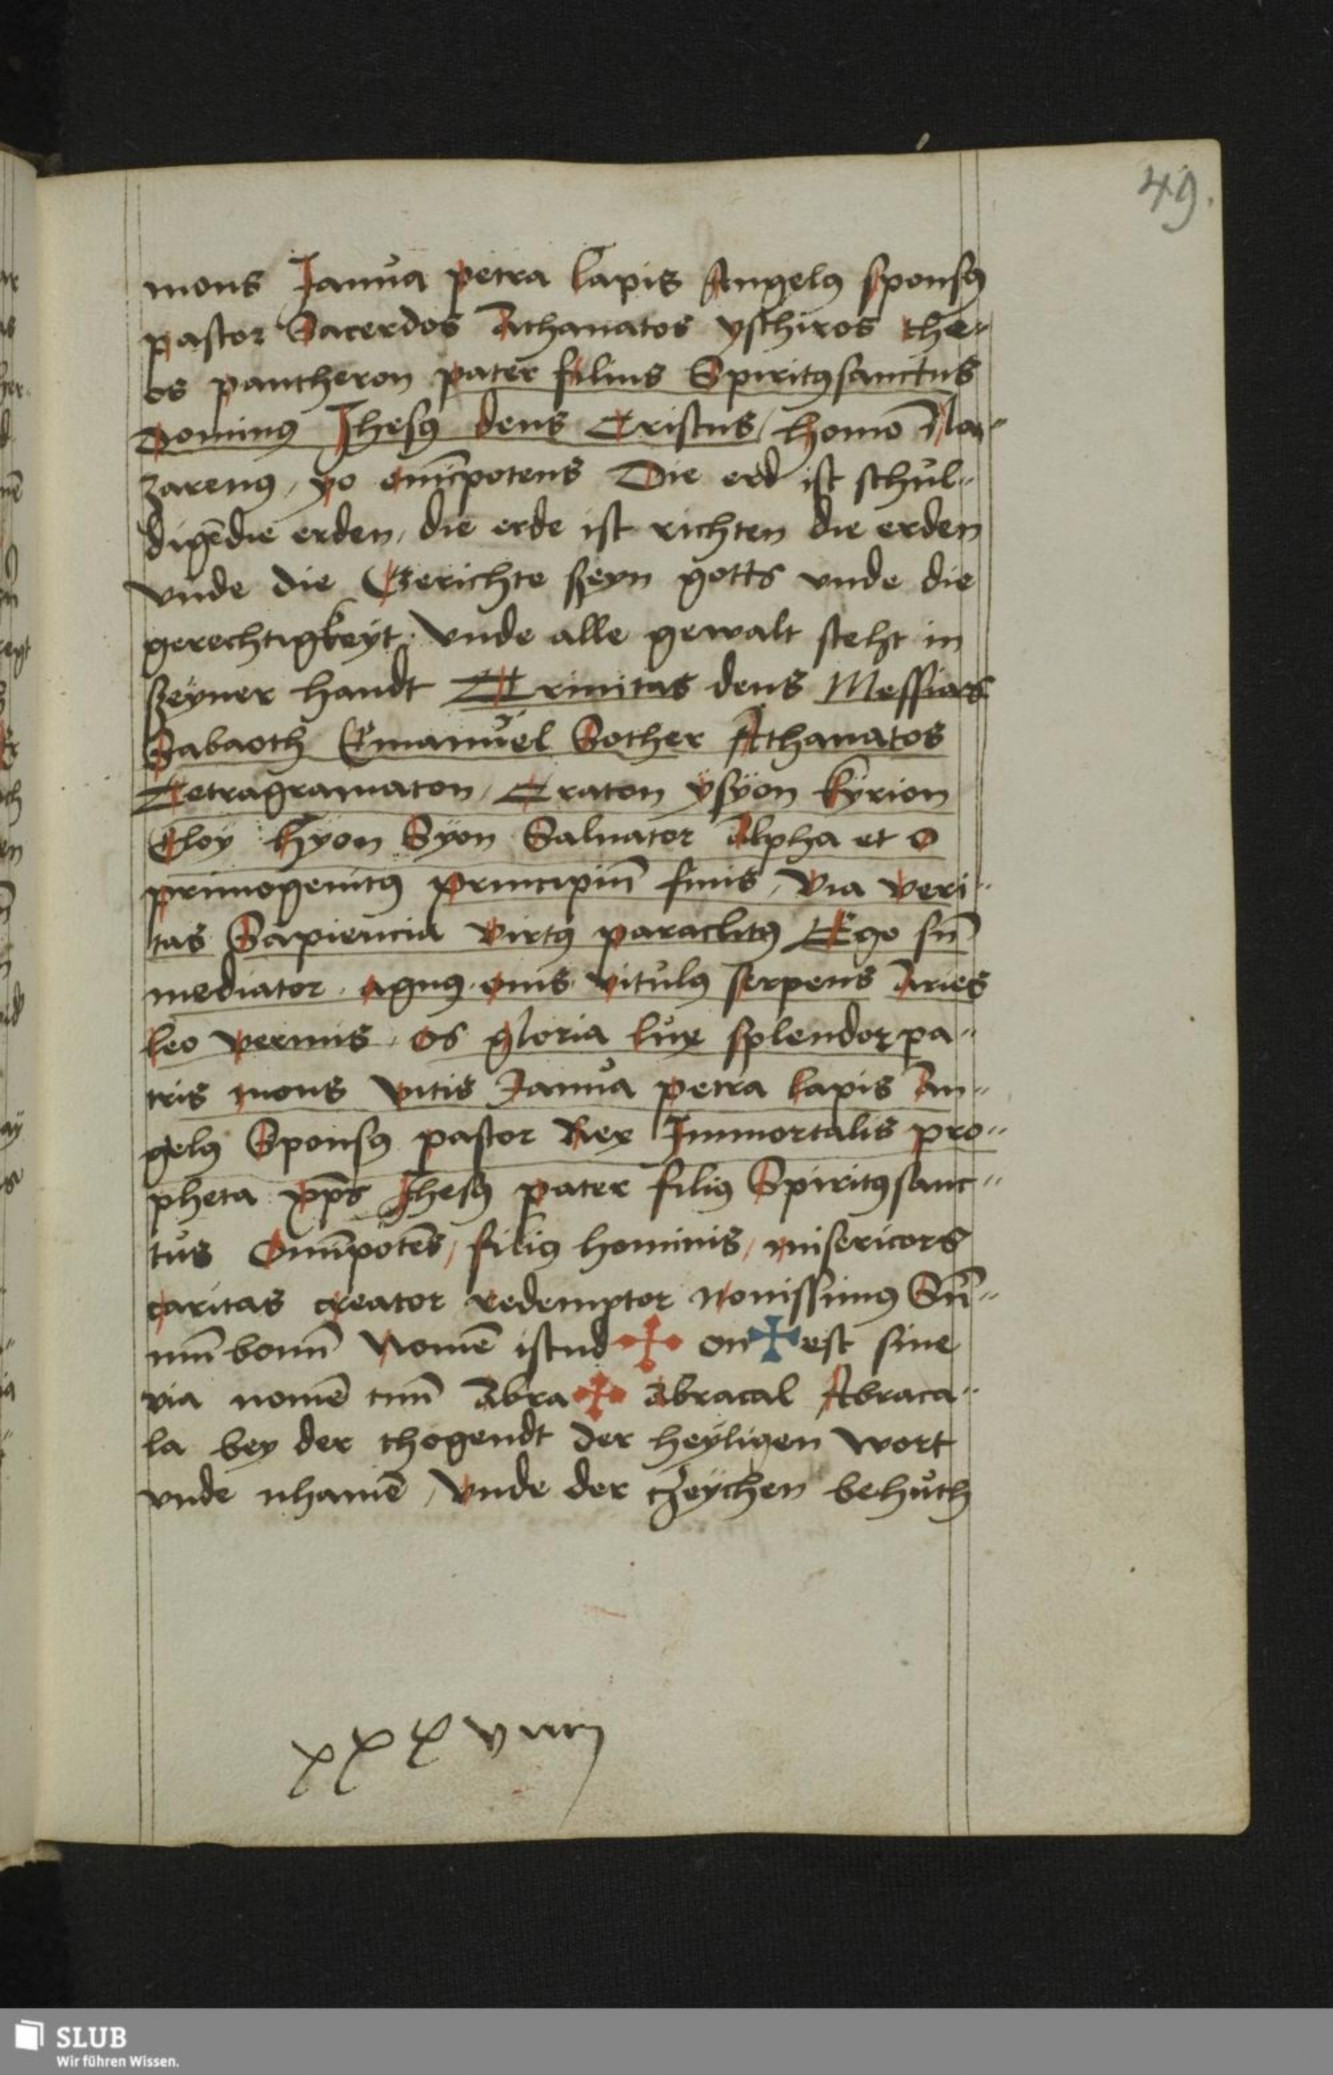 49.
mons Janua petra lapis Angelꝰ sponsꝰ
pastor Sacerdos Athanatos yschiros the-
os pantheron pater filius Spiritꝰsanctus
Dominꝰ Jhesꝰ deus Cristus / homo Na-
zarenꝰ / yo om̄ipotens Die erd ist schul-
digēdie erden / die erde ist richten die erden
vnde die Gerichte seyn gotts vnde die
gerechtigkeyt · Vnde alle gewalt steht in
seyner handt Trinitas deus Messias
Sabaoth Emanuel Sother Athanatos
Tetragramaton / Eraton ÿsÿon kyrion
Eloy Hyon Syon Saluator Alpha et o
primogenitꝰ principiū finis / Via veri-
tas Sapiencia virtꝰ paraclitꝰ Ego sū
mediator · agnꝰ · ouis vitulꝰ serpens Aries
leo vermis · os gloria lux splendor pa-
tris mons vitis Janua petra lapis An-
gelꝰ Sponsꝰ pastor Rex Immortalis pro-
pheta xp̄s Jhesꝰ pater filiꝰ Spiritꝰsanc-
tus Om̄ipotēs / filiꝰ hominis / misericors
caritas creator redemptor nouissimꝰ Sū-
mū bonū Nomē istud ✠ on ✠ est siue
via nomē tuū Abra ✠ Abracal Abraca-
la bey der thogendt der heyligen wort
vnde nhamē / Vnde der tzeychen behuth
xxxviiij
SLUB
Wir führen Wissen.